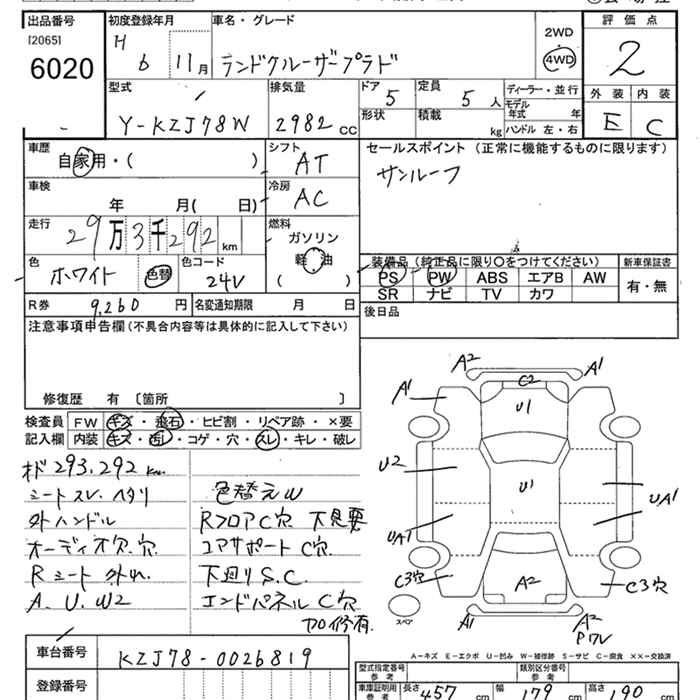 出品番号 初度登録年月 車名・グレード 評価点
[2065] H 2WD
6020 6 11月 ランドクルーザープラド 4WD 2
型式 排気量 ドア 5 定員 5人 ディーラー・並行 外装 内装
形状 積載 kg モデル年式 年
Y-KZJ78W 2982cc ハンドル 左・右 E C
車歴 シフト セールスポイント (正常に機能するものに限ります)
自家用・( ) AT サンルーフ
車検 冷房
年 月( 日) AC
走行 燃料
29万3千292km ガソリン
色 色コード 軽油 装備品 (純正品に限り○をつけてください) 新車保証書
ホワイト 色替 24V ( ) PS PW ABS エアB AW 有・無
SR ナビ TV カワ
R券 9,260円 名変通知期限 月 日 後日品
注意事項申告欄 (不具合内容等は具体的に記入して下さい)
修復歴 有 〔箇所 〕
検査員 FW キズ・飛石・ヒビ割・リペア跡・×要
記入欄 内装 キズ・汚れ・コゲ・穴・スレ・キレ・破レ
オド293,292km
シートスレ、ヘタリ 色替えW
外ハンドル RフロアC穴 下見要
オーディオ欠、穴 コアサポートC穴
Rシート外れ 下廻りS.C
A.U.W2 エンドパネルC穴
加修有
A2
A1 A1
C2
U1
U2 U1 UA1
UA1
C3穴 A2 C3穴
スペア
A1 A2
Pワレ
A-キズ E-エクボ U-凹み W-補修跡 S-サビ C-腐食 XX-交換済
車台番号 KZJ78-0026819
登録番号
型式指定番号 参考 類別区分番号 参考
車庫証明用 参考 長さ 457cm 幅 179cm 高さ 190cm